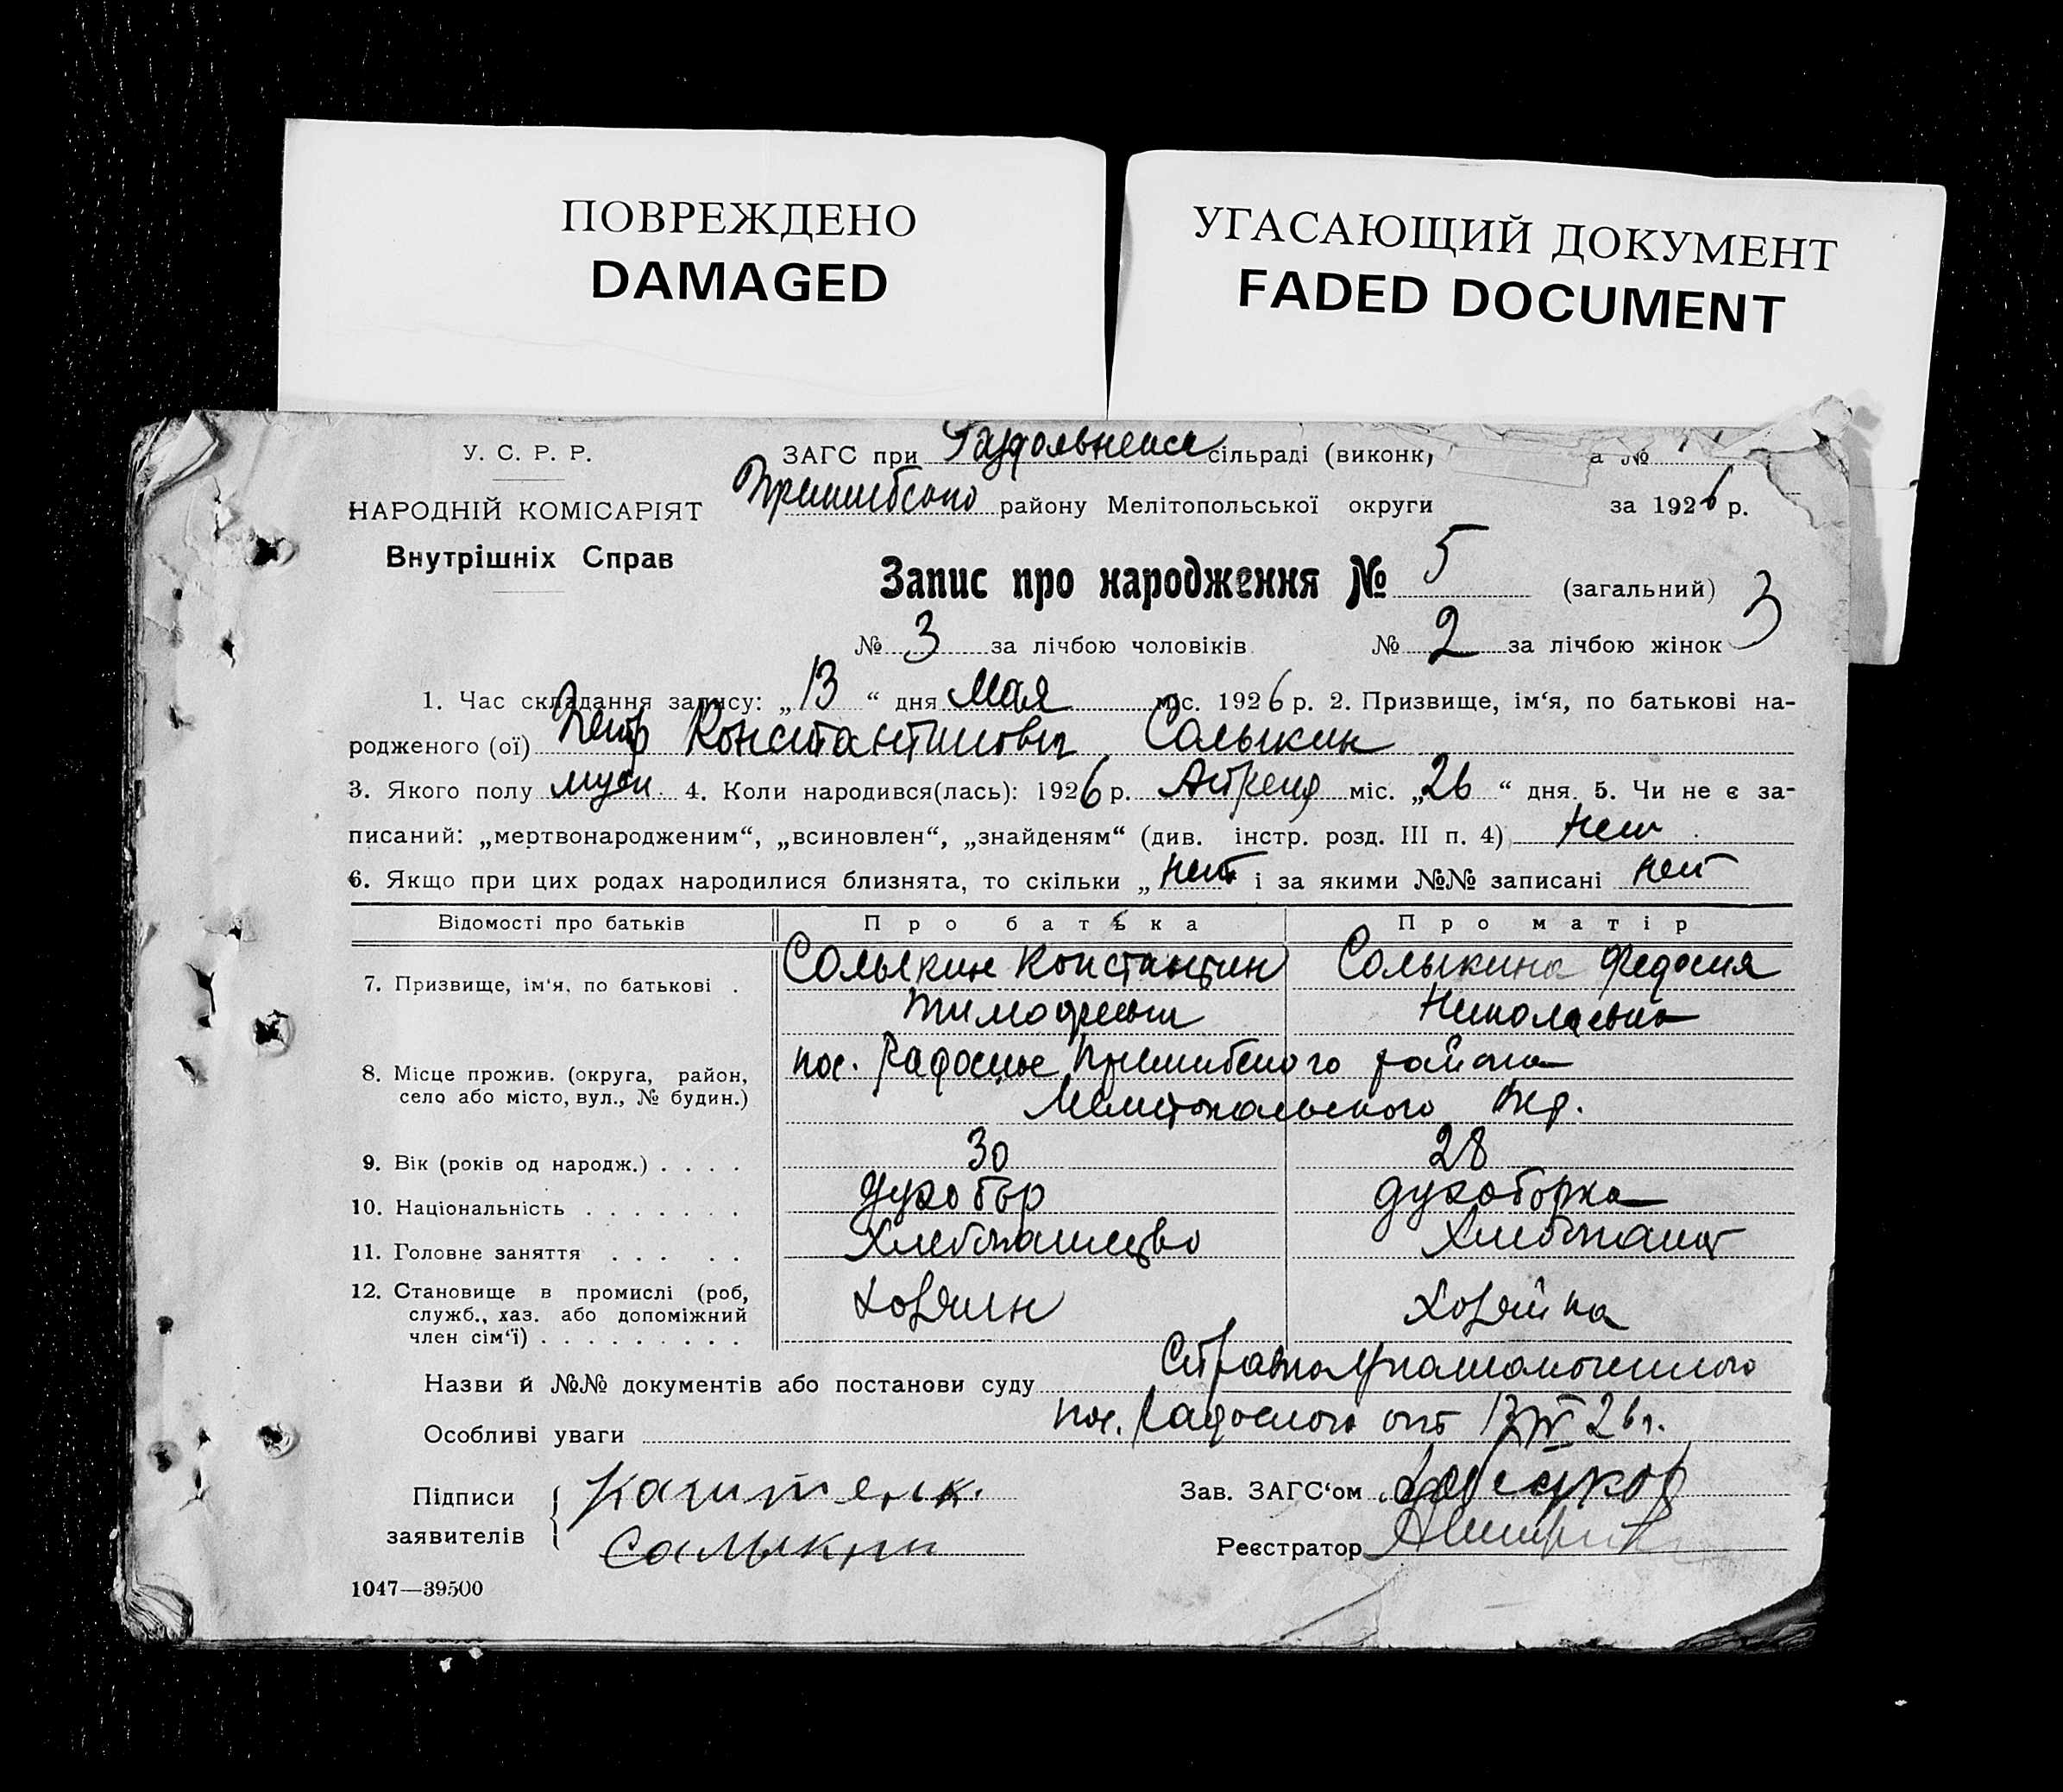 ПОВРЕЖДЕНО
DAMAGED
УГАСАЮЩИЙ ДОКУМЕНТ
FADED DOCUMENT
У. С. Р. Р.
НАРОДНІЙ КОМІСАРІЯТ
Внутрішніх Справ
ЗАГС при сільраді (виконк, а №
району Мелітопольської округи за 1926 р.
Запис про народження № 5 (загальний) 3
№ 3 за лічбою чоловіків № 2 за лічбою жінок
1. Час складання запису: „13“ дня Мая міс. 1926 р. 2. Призвище, ім‘я, по батькові на-
родженого (ої) Петр Константинович Салыкин
3. Якого полу муж. 4. Коли народився(лась): 1926 р. Апреля міс. „26“ дня. 5. Чи не є за-
писаний: „мертвонародженим“, „всиновлен“, „знайденям“ (див. інстр. розд. III п. 4) нет
6. Якщо при цих родах народилися близнята, то скільки „нет і за якими №№ записані нет
Відомості про батьків Про батька Про матір
7. Призвище, ім‘я, по батькові . Салыкин Константин Салыкина Федосия
Тимофеевич Николаевна
8. Місце прожив. (округа, район, село або місто, вул., № будин.) пос. района
Мелитопольского
9. Вік (років од народж.) . . . . 30 28
10. Національність . . . . . . . духобор духоборка
11. Головне заняття . . . . . Хлебопашество
12. Становище в промислі (роб, служб., хаз. або допоміжний член сім‘ї) . . . . . . . . . Хозяин Хозяйка
Назви й №№ документів або постанови суду
Особливі уваги пос. от
Підписи заявителів
Салыкин
Зав. ЗАГС‘ом
Реєстратор
1047—39500